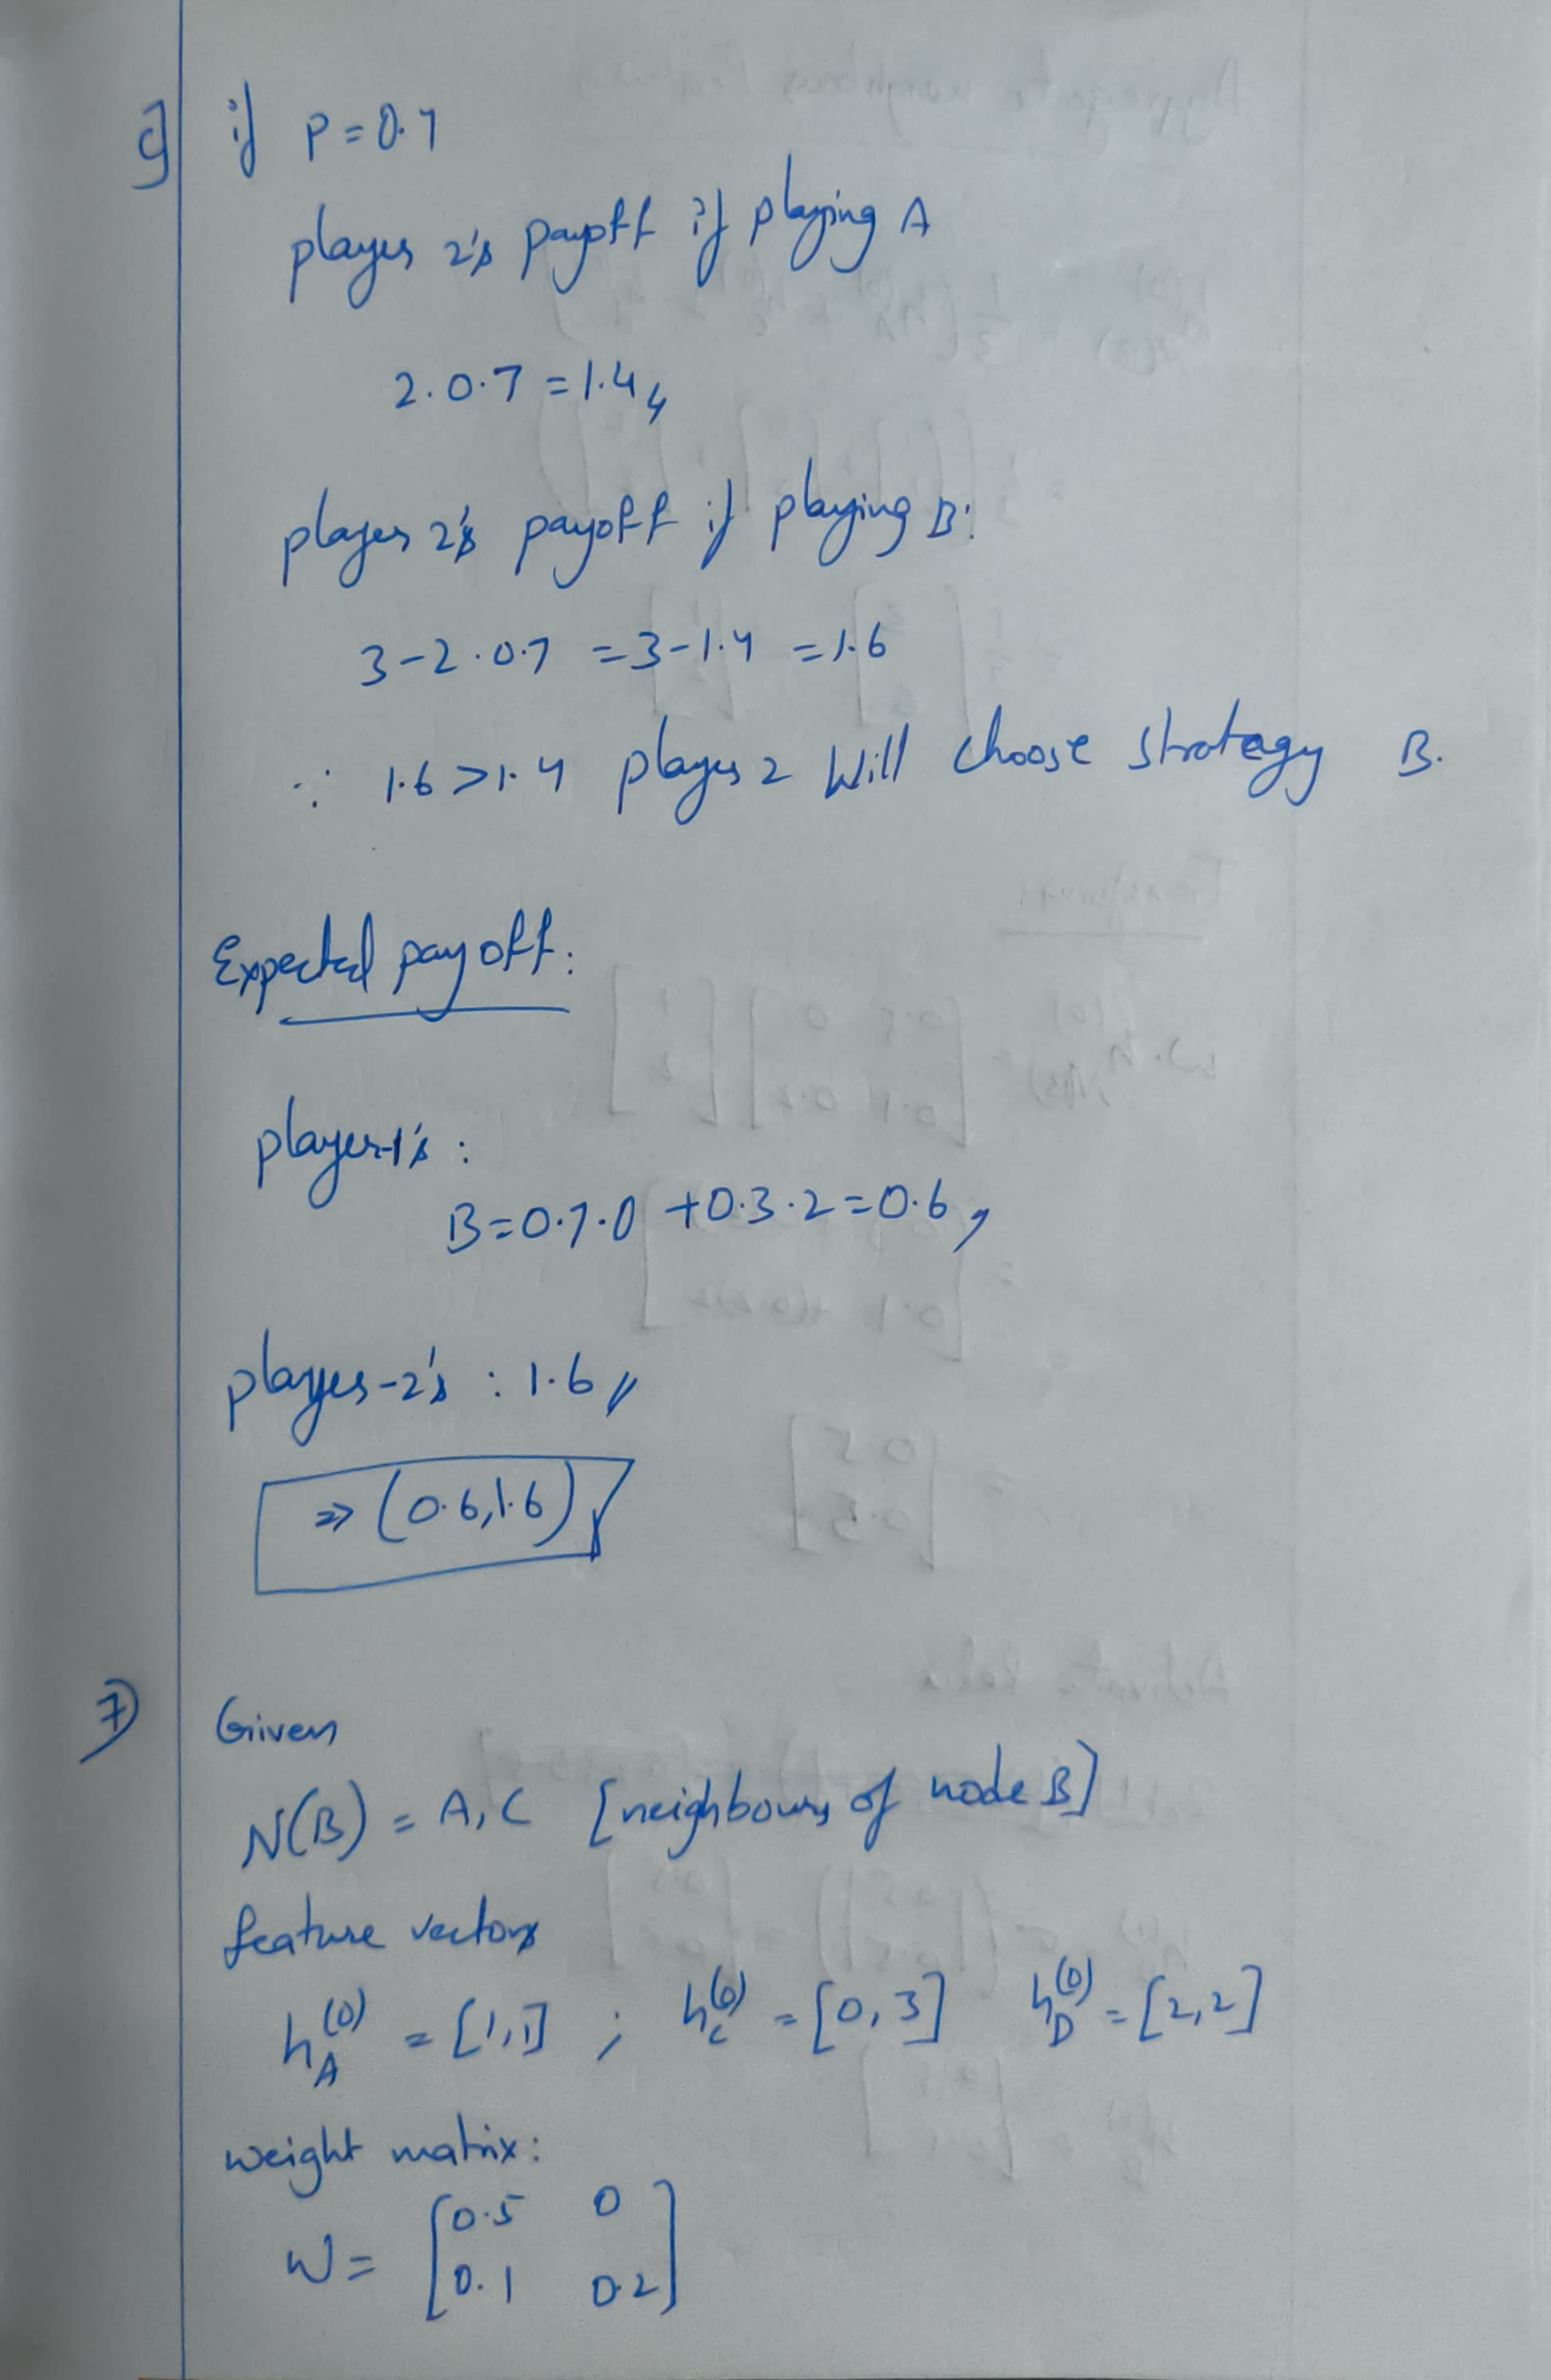 g] if P=0.7
player 2's payoff if playing A
2.0.7 = 1.4
player 2's payoff if playing B:
3-2.0.7 = 3-1.4 = 1.6
∵ 1.6>1.4 player 2 Will choose strategy B.
Expected payoff:
player-1's :
B=0.7.0 +0.3.2=0.6
player-2's : 1.6
⇒ (0.6,1.6)
7) Given
N(B) = A, C [neighbours of node B]
feature vectors
h_A^(0) = [1,1] ; h_C^(0) = [0,3] h_D^(0) = [2,2]
weight matrix:
W = [0.5 0
0.1 0.2]